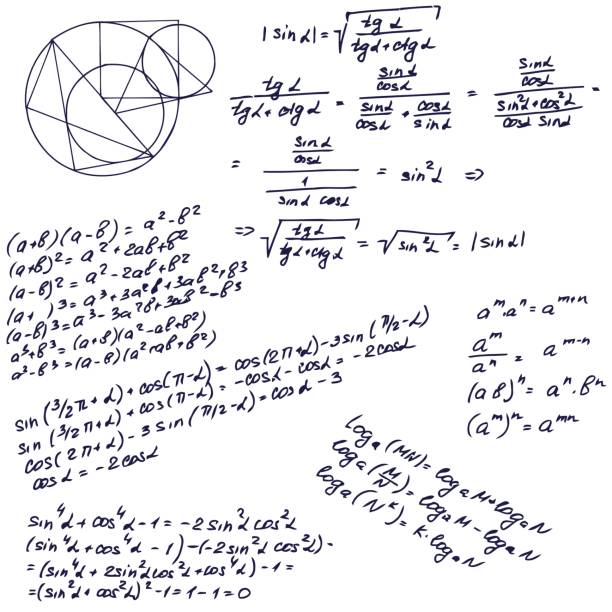 |sin α| = √(tg α / (tg α + ctg α))
tg α / (tg α + ctg α) = (sin α / cos α) / (sin α / cos α + cos α / sin α) = (sin α / cos α) / ((sin²α + cos²α) / (cos α sin α)) =
= (sin α / cos α) / (1 / (sin α cos α)) = sin²α ⇒
⇒ √(tg α / (tg α + ctg α)) = √(sin²α) = |sin α|
(a+b)(a-b) = a²-b²
(a+b)² = a²+2ab+b²
(a-b)² = a²-2ab+b²
(a+ )³ = a³+3a²b+3ab²+b³
(a-b)³ = a³-3a²b+3ab²-b³
a³+b³ = (a+b)(a²-ab+b²)
a³-b³ = (a-b)(a²+ab+b²)
sin(3/2π+α) + cos(π-α) = cos(2π+α) - 3sin(π/2-α)
sin(3/2π+α) + cos(π-α) = -cosα - cosα = -2cosα
cos(2π+α) - 3sin(π/2-α) = cosα - 3
cosα = -2cosα
aᵐ·aⁿ = aᵐ⁺ⁿ
aᵐ / aⁿ = aᵐ⁻ⁿ
(ab)ⁿ = aⁿ·bⁿ
(aᵐ)ⁿ = aᵐⁿ
logₐ(MN) = logₐM + logₐN
logₐ(M/N) = logₐM - logₐN
logₐ(Nᵏ) = k·logₐN
sin⁴α + cos⁴α - 1 = -2sin²α cos²α
(sin⁴α + cos⁴α - 1) - (-2sin²α cos²α) =
= (sin⁴α + 2sin²α cos²α + cos⁴α) - 1 =
= (sin²α + cos²α)² - 1 = 1 - 1 = 0